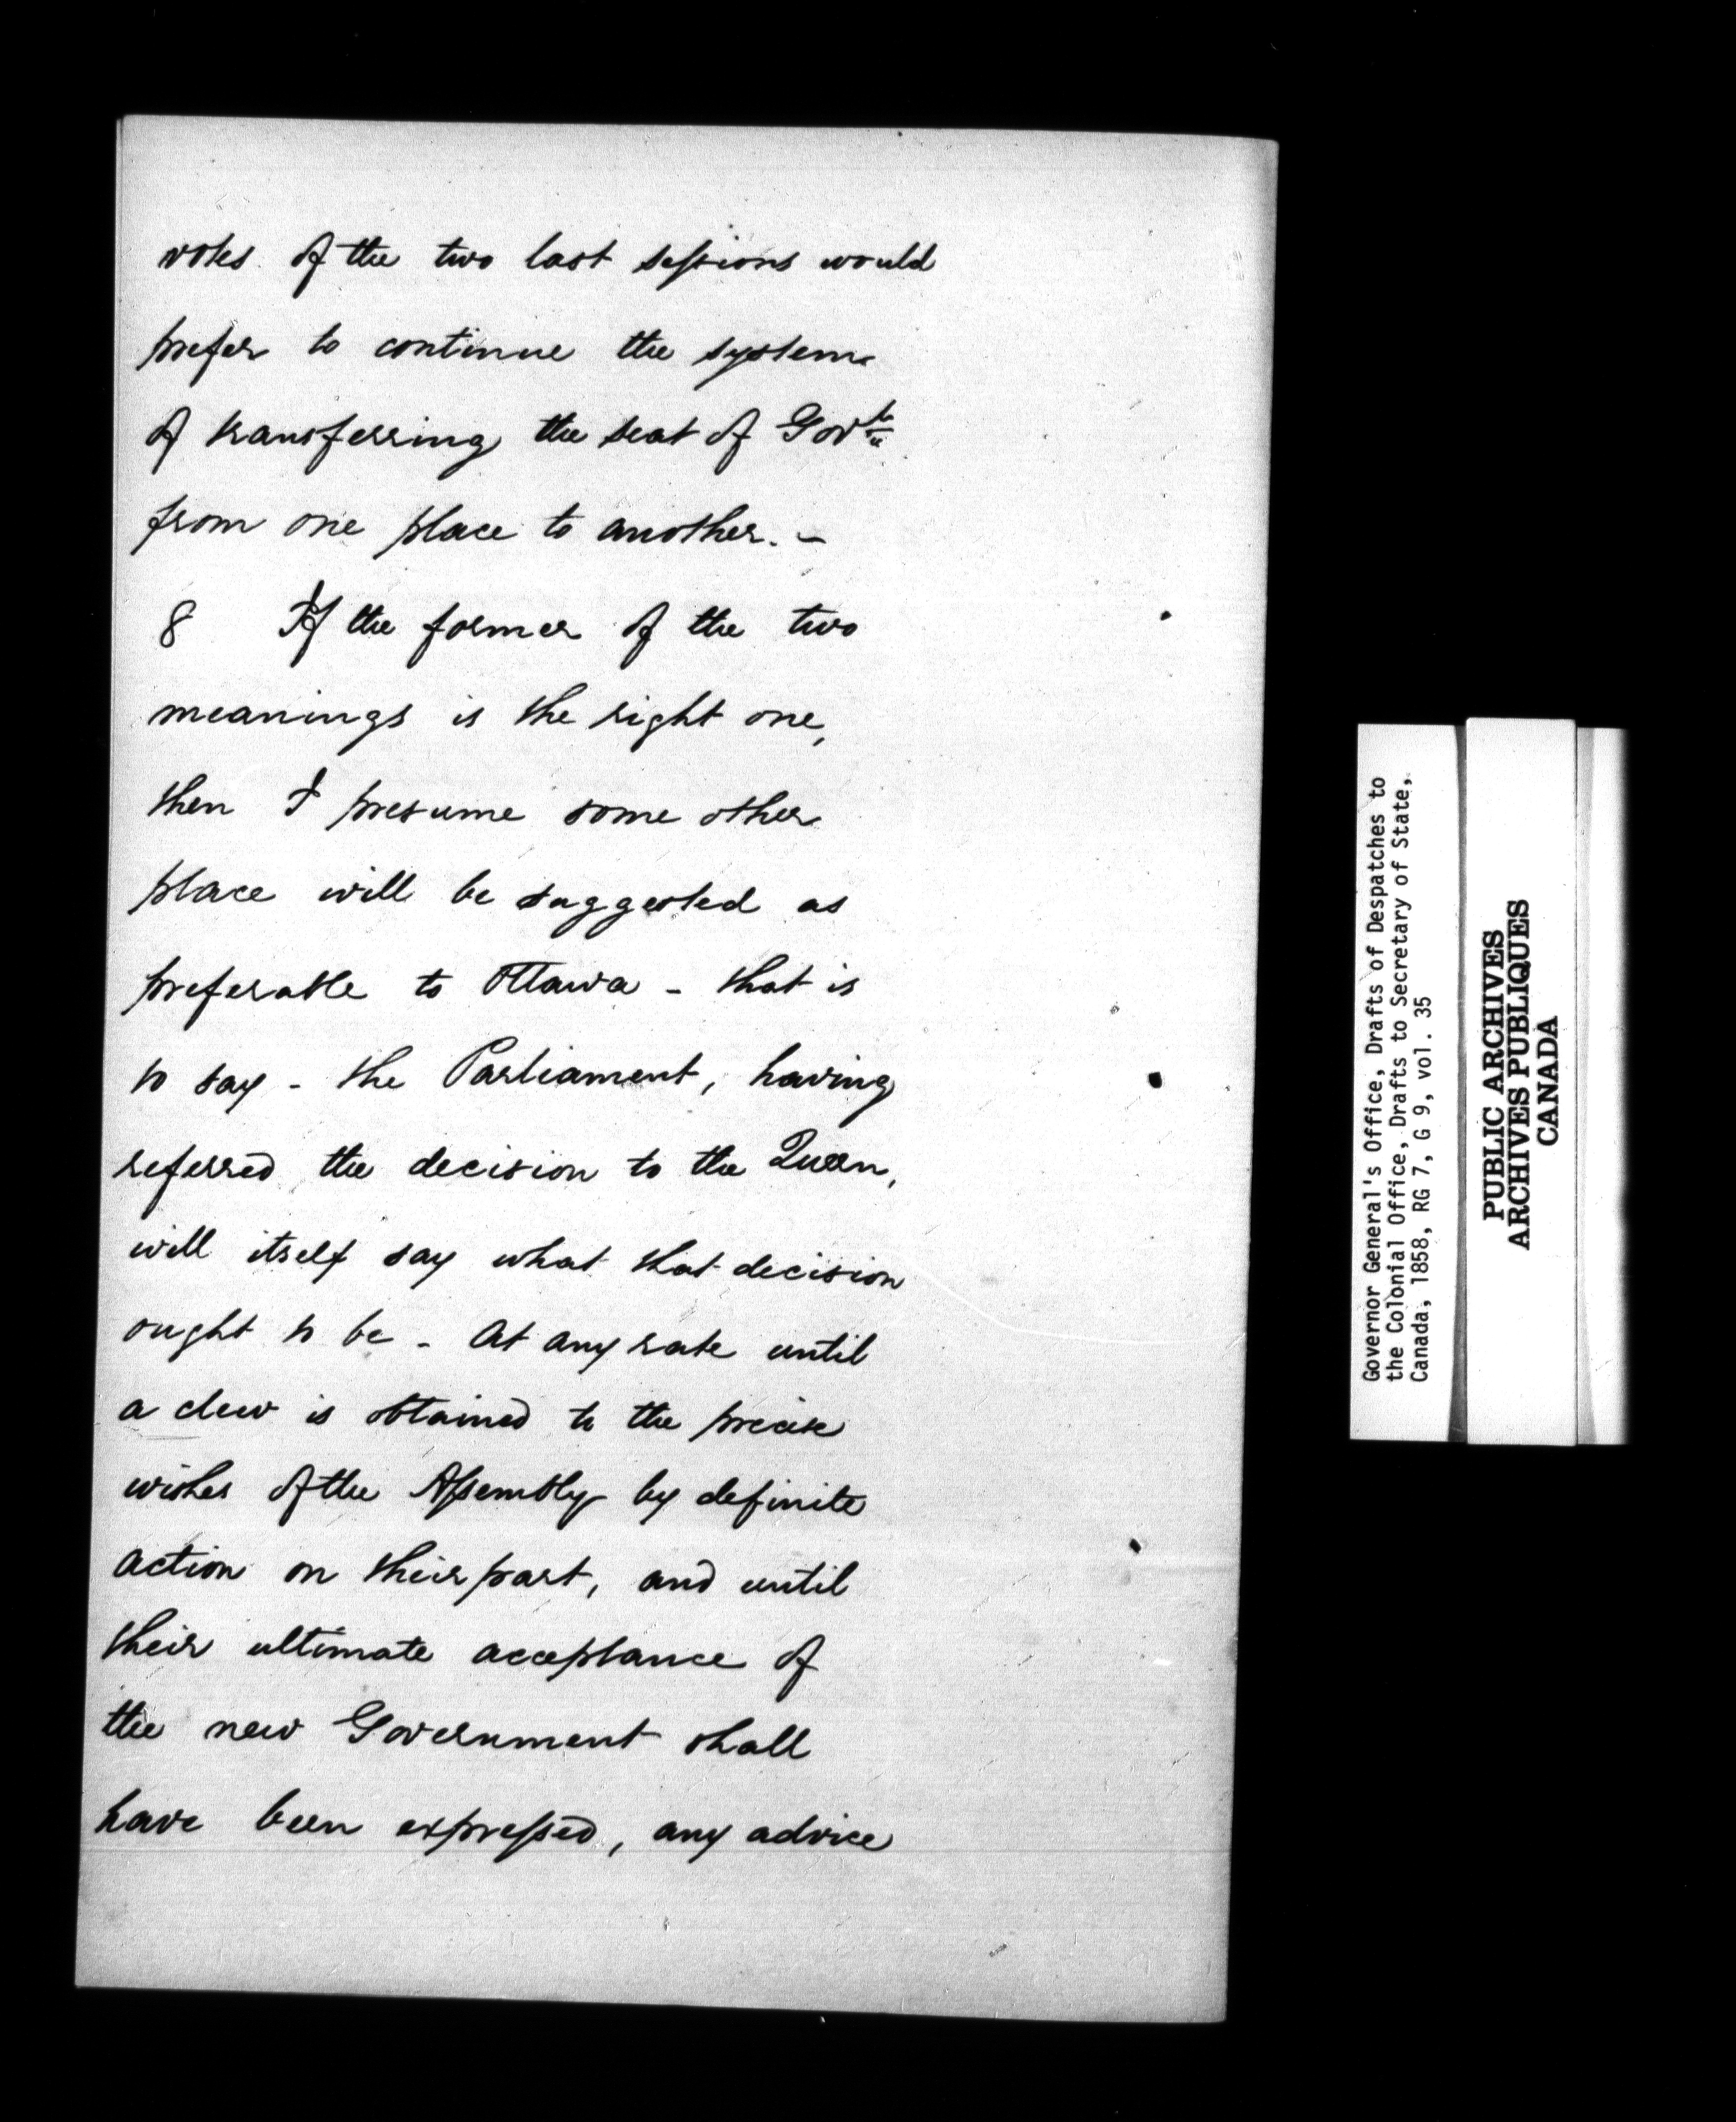 votes of the two last sessions would
prefer to continue the system
of transferring the seat of Govt
from one place to another. -
8 If the former of the two
meanings is the right one,
then I presume some other
place will be suggested as
preferable to Ottawa - that is
to say - the Parliament, having
referred the decision to the Queen,
will itself say what that decision
ought to be - At any rate until
a clew is obtained to the precise
wishes of the Assembly by definite
action on their part, and until
their ultimate acceptance of
the new Government shall
have been expressed, any advice
Governor General's Office, Drafts of Despatches to
the Colonial Office, Drafts to Secretary of State,
Canada, 1858, RG 7, G 9, vol. 35
PUBLIC ARCHIVES
ARCHIVES PUBLIQUES
CANADA